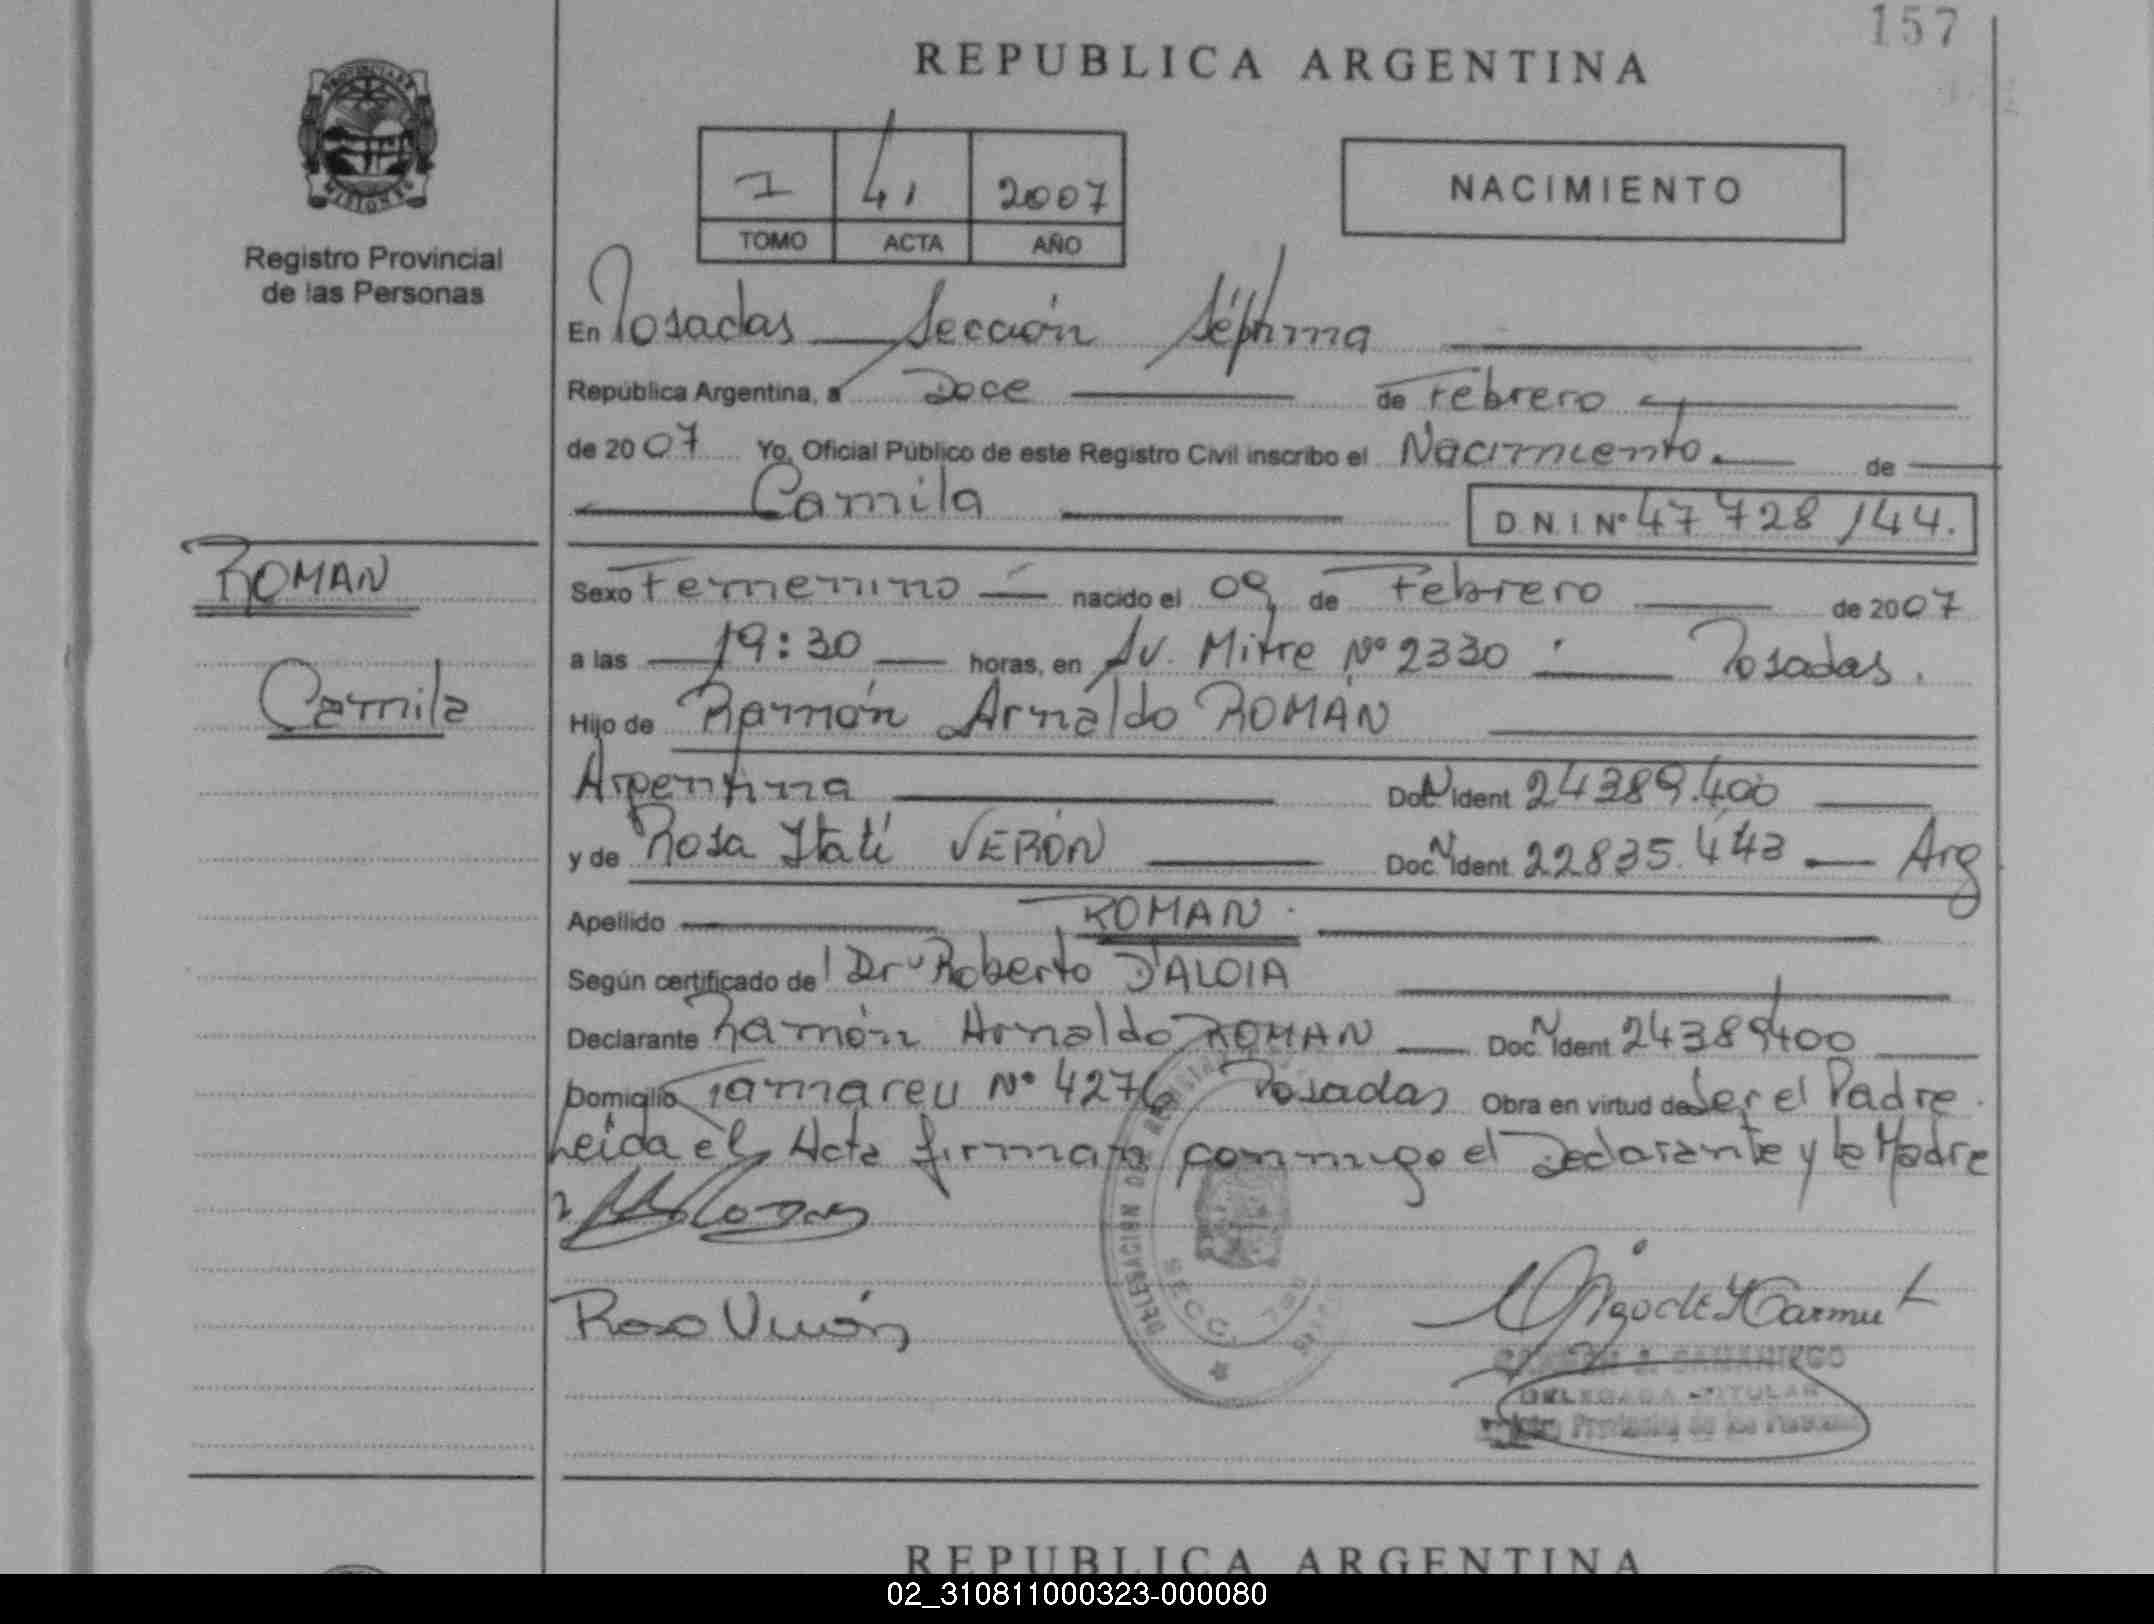 157
REPUBLICA ARGENTINA
PROVINCIA DE
MISIONES
Registro Provincial
de las Personas
I 41 2007
TOMO ACTA AÑO
NACIMIENTO
En Posadas Sección Séptima
República Argentina, a Doce de Febrero
de 2007 Yo, Oficial Público de este Registro Civil inscribo el Nacimiento. de
Camila D.N.I Nº 47 728 144.
ROMAN
Camila
Sexo Femenino nacido el 09 de Febrero de 2007
a las 19:30 horas, en Av. Mitre Nº 2330 Posadas.
Hijo de Ramón Arnaldo ROMAN
Argentina Doc. N Ident 24389.400
y de Rosa Itatí VERÓN Doc. N Ident. 22835.443 Arg
Apellido ROMAN.
Según certificado del Dr Roberto D'ALOIA
Declarante Ramón Arnaldo ROMAN Doc. N Ident 24389400
Domicilio Tamareu Nº 4276 Posadas Obra en virtud de Ser el Padre.
Leida el Acta firman conmigo el Declarante y la Madre
Rosa Verón
DELEGACIÓN DE
SECC. 7
SAMANIEGO
DELEGADA TITULAR
Registro Provincial de las Personas
REPUBLICA ARGENTINA
02_310811000323-000080